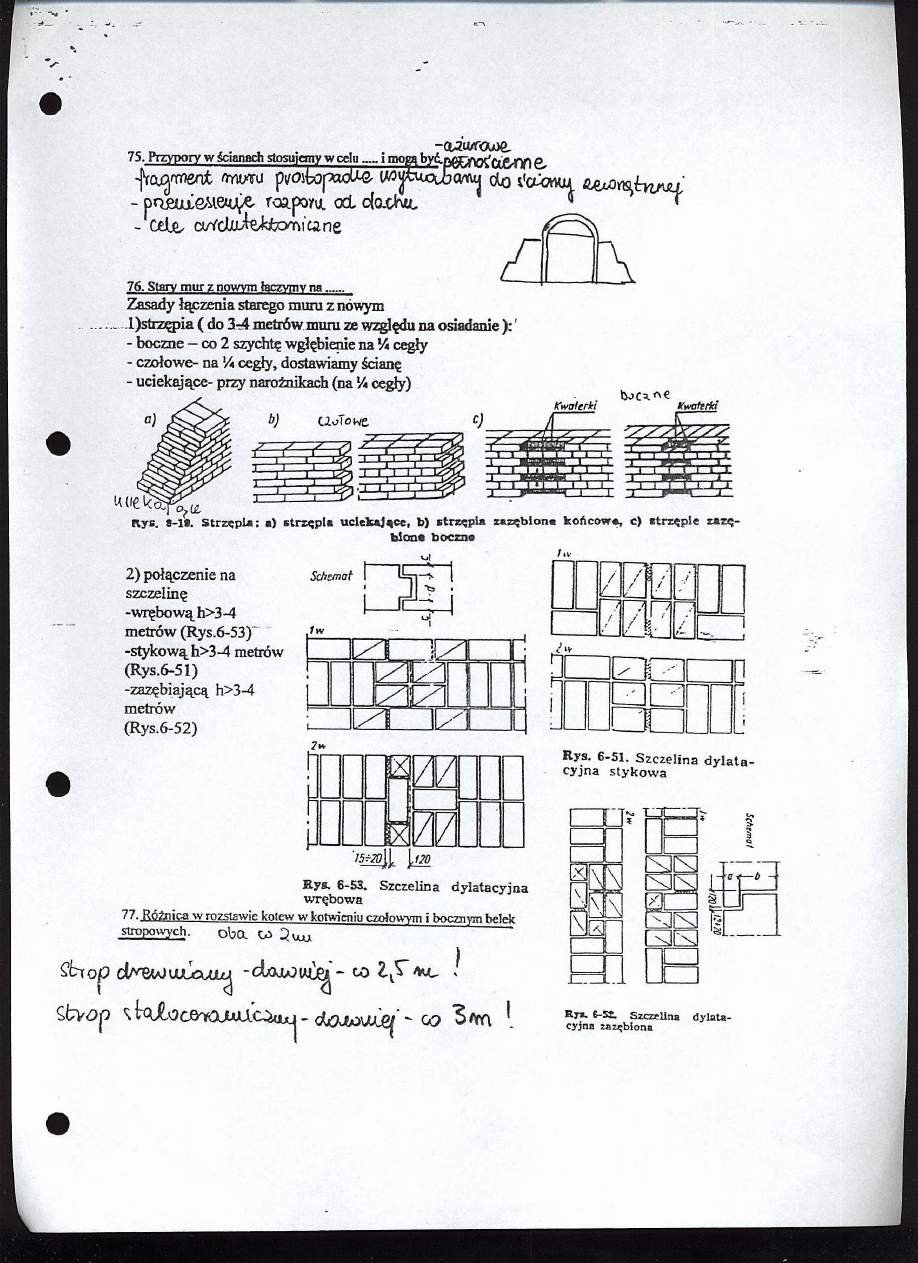 -ażurowe
75. Przypory w ścianach stosujemy w celu ..... i mogą być -pełnościenne
-fragment muru prostopadle usytuowany do ściany zewnętrznej
- przeniesienie rozporu od dachu
- cele architektoniczne
76. Stary mur z nowym łączymy na ......
Zasady łączenia starego muru z nowym
1)strzępia ( do 3-4 metrów muru ze względu na osiadanie ):
- boczne – co 2 szychtę wgłębienie na ¼ cegły
- czołowe- na ¼ cegły, dostawiamy ścianę
- uciekające- przy narożnikach (na ¼ cegły)
a)
uciekające
b) czołowe
c)
Kwaterki
boczne
Kwaterki
Rys. 8-18. Strzępia: a) strzępia uciekające, b) strzępia zazębione końcowe, c) strzępie zazę-
bione boczne
2) połączenie na
szczelinę
-wrębową h>3-4
metrów (Rys.6-53)
-stykową h>3-4 metrów
(Rys.6-51)
-zazębiającą h>3-4
metrów
(Rys.6-52)
Schemat
1w
2w
15÷20 120
Rys. 6-53. Szczelina dylatacyjna
wrębowa
1w
2w
Rys. 6-51. Szczelina dylata-
cyjna stykowa
2w
1w
Schemat
a b
Rys. 6-52. Szczelina dylata-
cyjna zazębiona
77. Różnica w rozstawie kotew w kotwieniu czołowym i bocznym belek
stropowych. oba co 2m
strop drewniany - dawniej - co 2,5 m !
strop staloceramiczny - dawniej - co 3m !